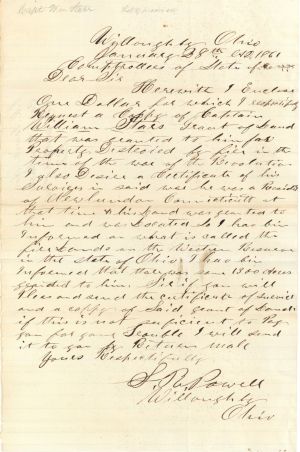 Willoughby Ohio
January 28th AD, 1861
Comptroller of State of
Dear Sir
Herewith I Enclose
One Dollar for which I respectfuly
Request a Copy of Captain
William Stars Grant of Land
that was granted to him for
Property Destroied by fire in the
time of the war of the Revolution
I also Desire a Certificate of his
Survices in said war he was a Resident
of Newlundon Connecticutt at
that time & his land was granted to
him and was Located as I has bin
Informed on what is called the
fire Lands on the Western Reserve
in the State of Ohio I has bin
Informed that thare was some 1300 acres
granted to him Sir if you will
and send the Certificate of Survice
and a coppy of said grant of Land
if this is not suficient to Pay
you for your Trouble I will send
it to you by Return Male
Yours Respectifully
S. R. Powell
Willoughby
Ohio